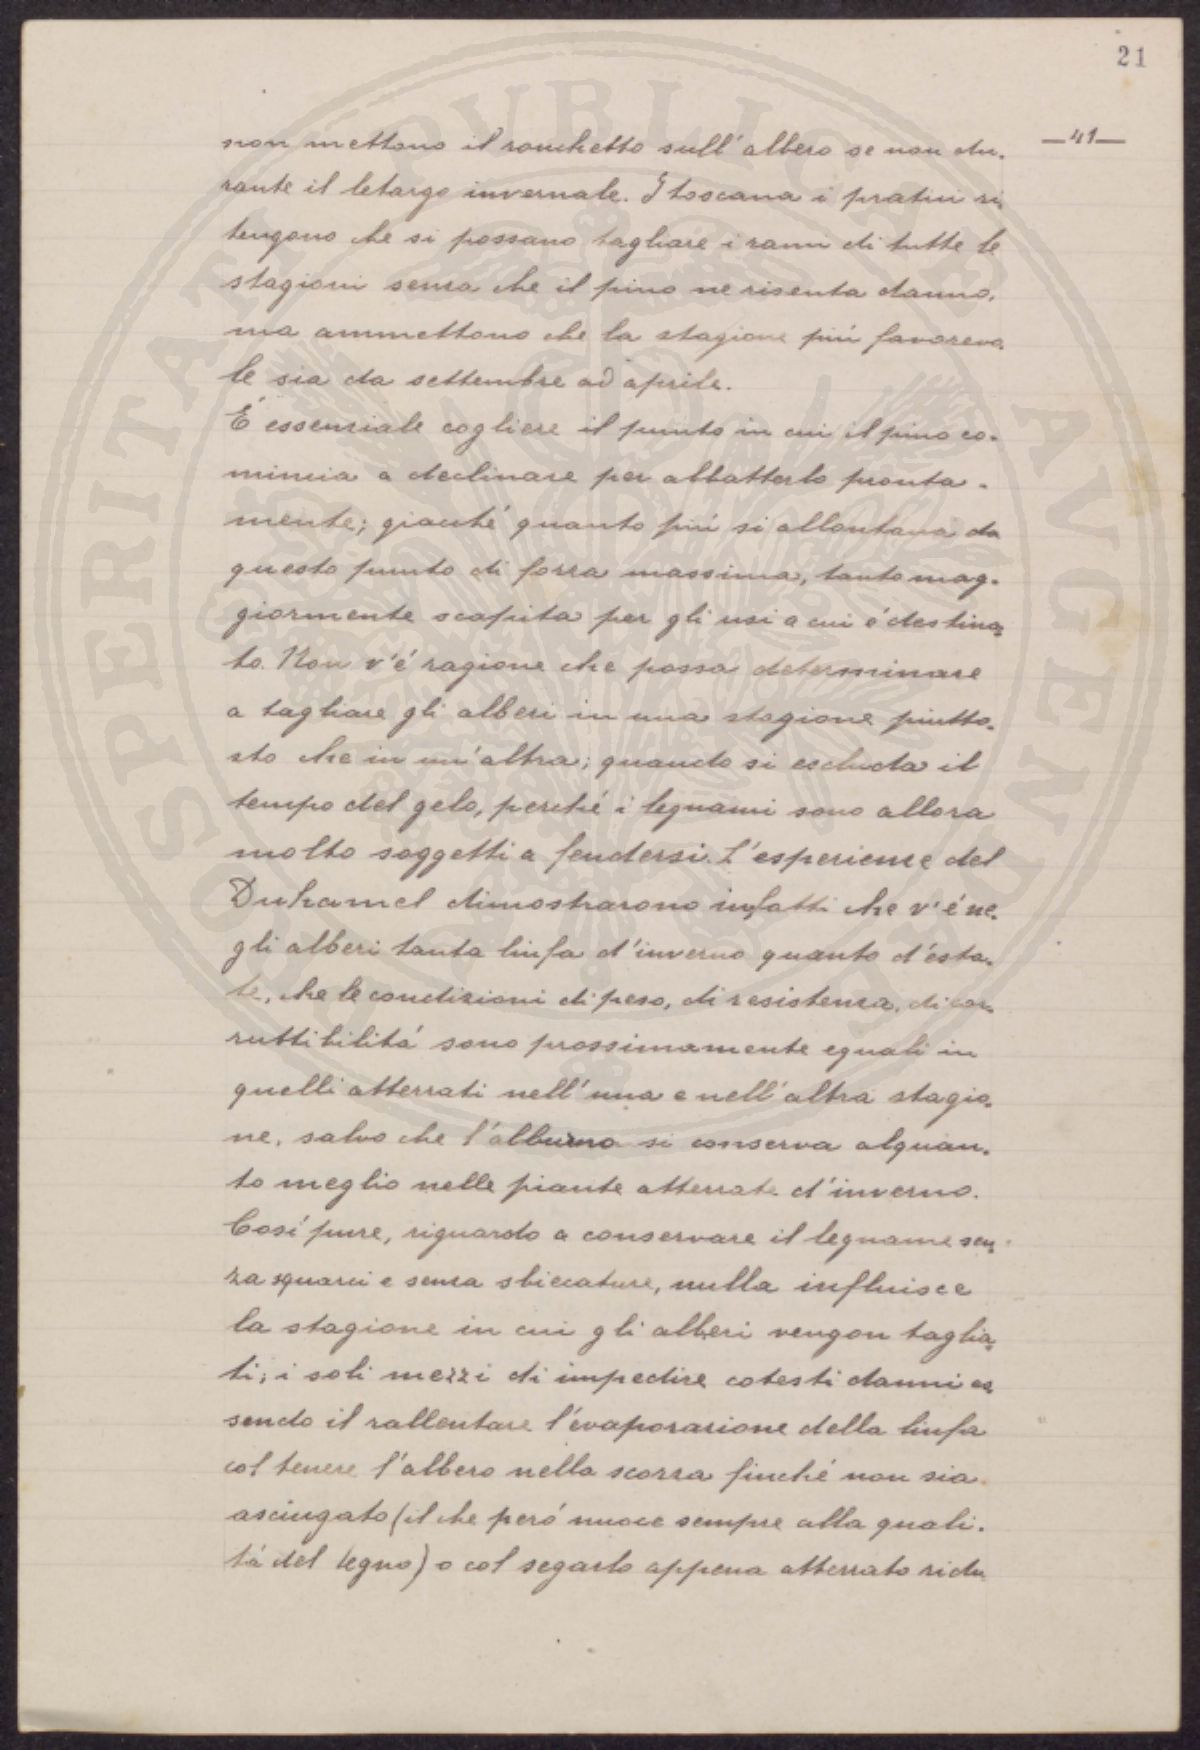 21
—41—
non mettono il ronchetto sull'albero se non du-
rante il letargo invernale. I toscana i pratici ri-
tengono che si possano tagliare i rami di tutte le
stagioni senza che il pino ne risenta danno,
ma ammettono che la stagione più favorevo-
le sia da settembre ad aprile.
É essenziale cogliere il punto in cui il pino co-
mincia a declinare per abbatterlo pronta-
mente; giacché quanto più si allontana da
questo punto di forza massima, tanto mag-
giormente scapita per gli usi a cui é destina-
to. Non v'é ragione che possa determinare
a tagliare gli alberi in una stagione piutto-
sto che in un'altra; quando si escluda il
tempo del gelo, perché i legnami sono allora
molto soggetti a fendersi. L'esperienze del
Duhamel dimostrarono infatti che v'é ne-
gli alberi tanta linfa d'inverno quanto d'esta-
te, che le condizioni di peso, di resistenza, di cor-
ruttibilitá sono prossimamente eguali in
quelli atterrati nell'una e nell'altra stagio-
ne, salvo che l'alburno si conserva alquan-
to meglio nelle piante atterrate d'inverno.
Cosí pure, riguardo a conservare il legname sen-
za squarci e senza sbiecature, nulla influisce
la stagione in cui gli alberi vengon taglia-
ti; i soli mezzi di impedire cotesti danni es-
sendo il rallentare l'evaporazione della linfa
col tenere l'albero nella scorza finché non sia
asciugato (il che peró nuoce sempre alla quali-
tá del legno) o col segarlo appena atterrato ridu-
PROSPERITATI PUBLICAE AUGENDAE